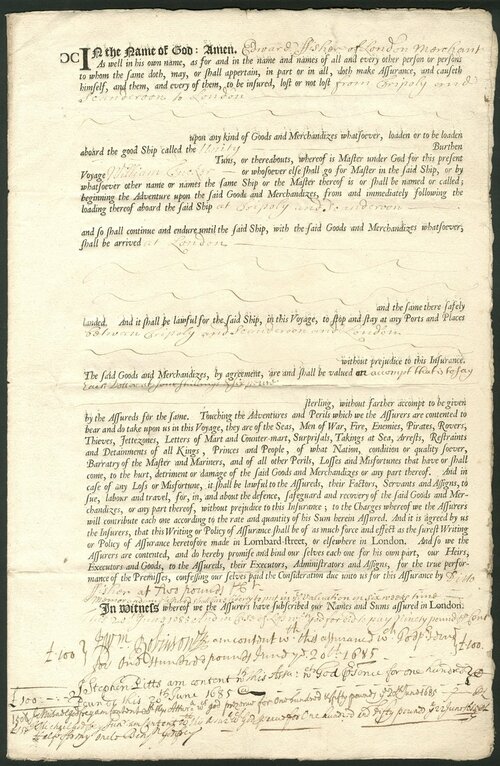 IN the Name of God: Amen. Edward Asher of London Merchant
As well in his own name, as for and in the name and names of all and every other person or persons
to whom the same doth, may, or shall appertain, in part or in all, doth make Assurance, and causeth
himself, and them, and every of them, to be insured, lost or not lost from Tripoly and
Scanderoon to London
upon any kind of Goods and Merchandizes whatsoever, loaden or to be loaden
aboard the good Ship called the Burthen
Tuns, or thereabouts, whereof is Master under God for this present
Voyage William or whosoever else shall go for Master in the said Ship, or by
whatsoever other name or names the same Ship or the Master thereof is or shall be named or called;
beginning the Adventure upon the said Goods and Merchandizes, from and immediately following the
loading thereof aboard the said Ship at Tripoly and Scanderoon
and so shall continue and endure until the said Ship, with the said Goods and Merchandizes whatsoever,
shall be arrived at London
and the same there safely
landed. And it shall be lawful for the said Ship, in this Voyage, to stop and stay at any Ports and Places
between Tripoly and Scanderoon and London
without prejudice to this Insurance.
The said Goods and Merchandizes, by agreement, are and shall be valued on accompt that is to say
Each Dollar at four shillings
sterling, without farther accompt to be given
by the Assureds for the same. Touching the Adventures and Perils which we the Assurers are contented to
bear and do take upon us in this Voyage, they are of the Seas, Men of War, Fire, Enemies, Pirates, Rovers,
Thieves, Jettezones, Letters of Mart and Counter-mart, Surprisals, Takings at Sea, Arrests, Restraints
and Detainments of all Kings, Princes and People, of what Nation, condition or quality soever,
Barratry of the Master and Mariners, and of all other Perils, Losses and Misfortunes that have or shall
come, to the hurt, detriment or damage of the said Goods and Merchandizes or any part thereof. And in
case of any Loss or Misfortune, it shall be lawful to the Assureds, their Factors, Servants and Assigns, to
sue, labour and travel, for, in, and about the defence, safeguard and recovery of the said Goods and Mer-
chandizes, or any part thereof, without prejudice to this Insurance; to the Charges whereof we the Assurers
will contribute each one according to the rate and quantity of his Sum herein Assured. And it is agreed by us
the Insurers, that this Writing or Policy of Assurance shall be of as much force and effect as the surest Writing
or Policy of Assurance heretofore made in Lombard-street, or elsewhere in London. And so we the
Assurers are contented, and do hereby promise and bind our selves each one for his own part, our Heirs,
Executors and Goods, to the Assureds, their Executors, Administrators and Assigns, for the true perfor-
mance of the Premisses, confessing our selves paid the Consideration due unto us for this Assurance by
at two pounds
In witness whereof we the Assurers have subscribed our Names and Sums assured in London.
£100 Robinson am content with this assurance £100
for one hundred pounds June 20th 1685
I Stephen Pitts am content with this for one hundred
£100 Pound this June 1685
for one hundred & fifty pounds
for One hundred & fifty pound